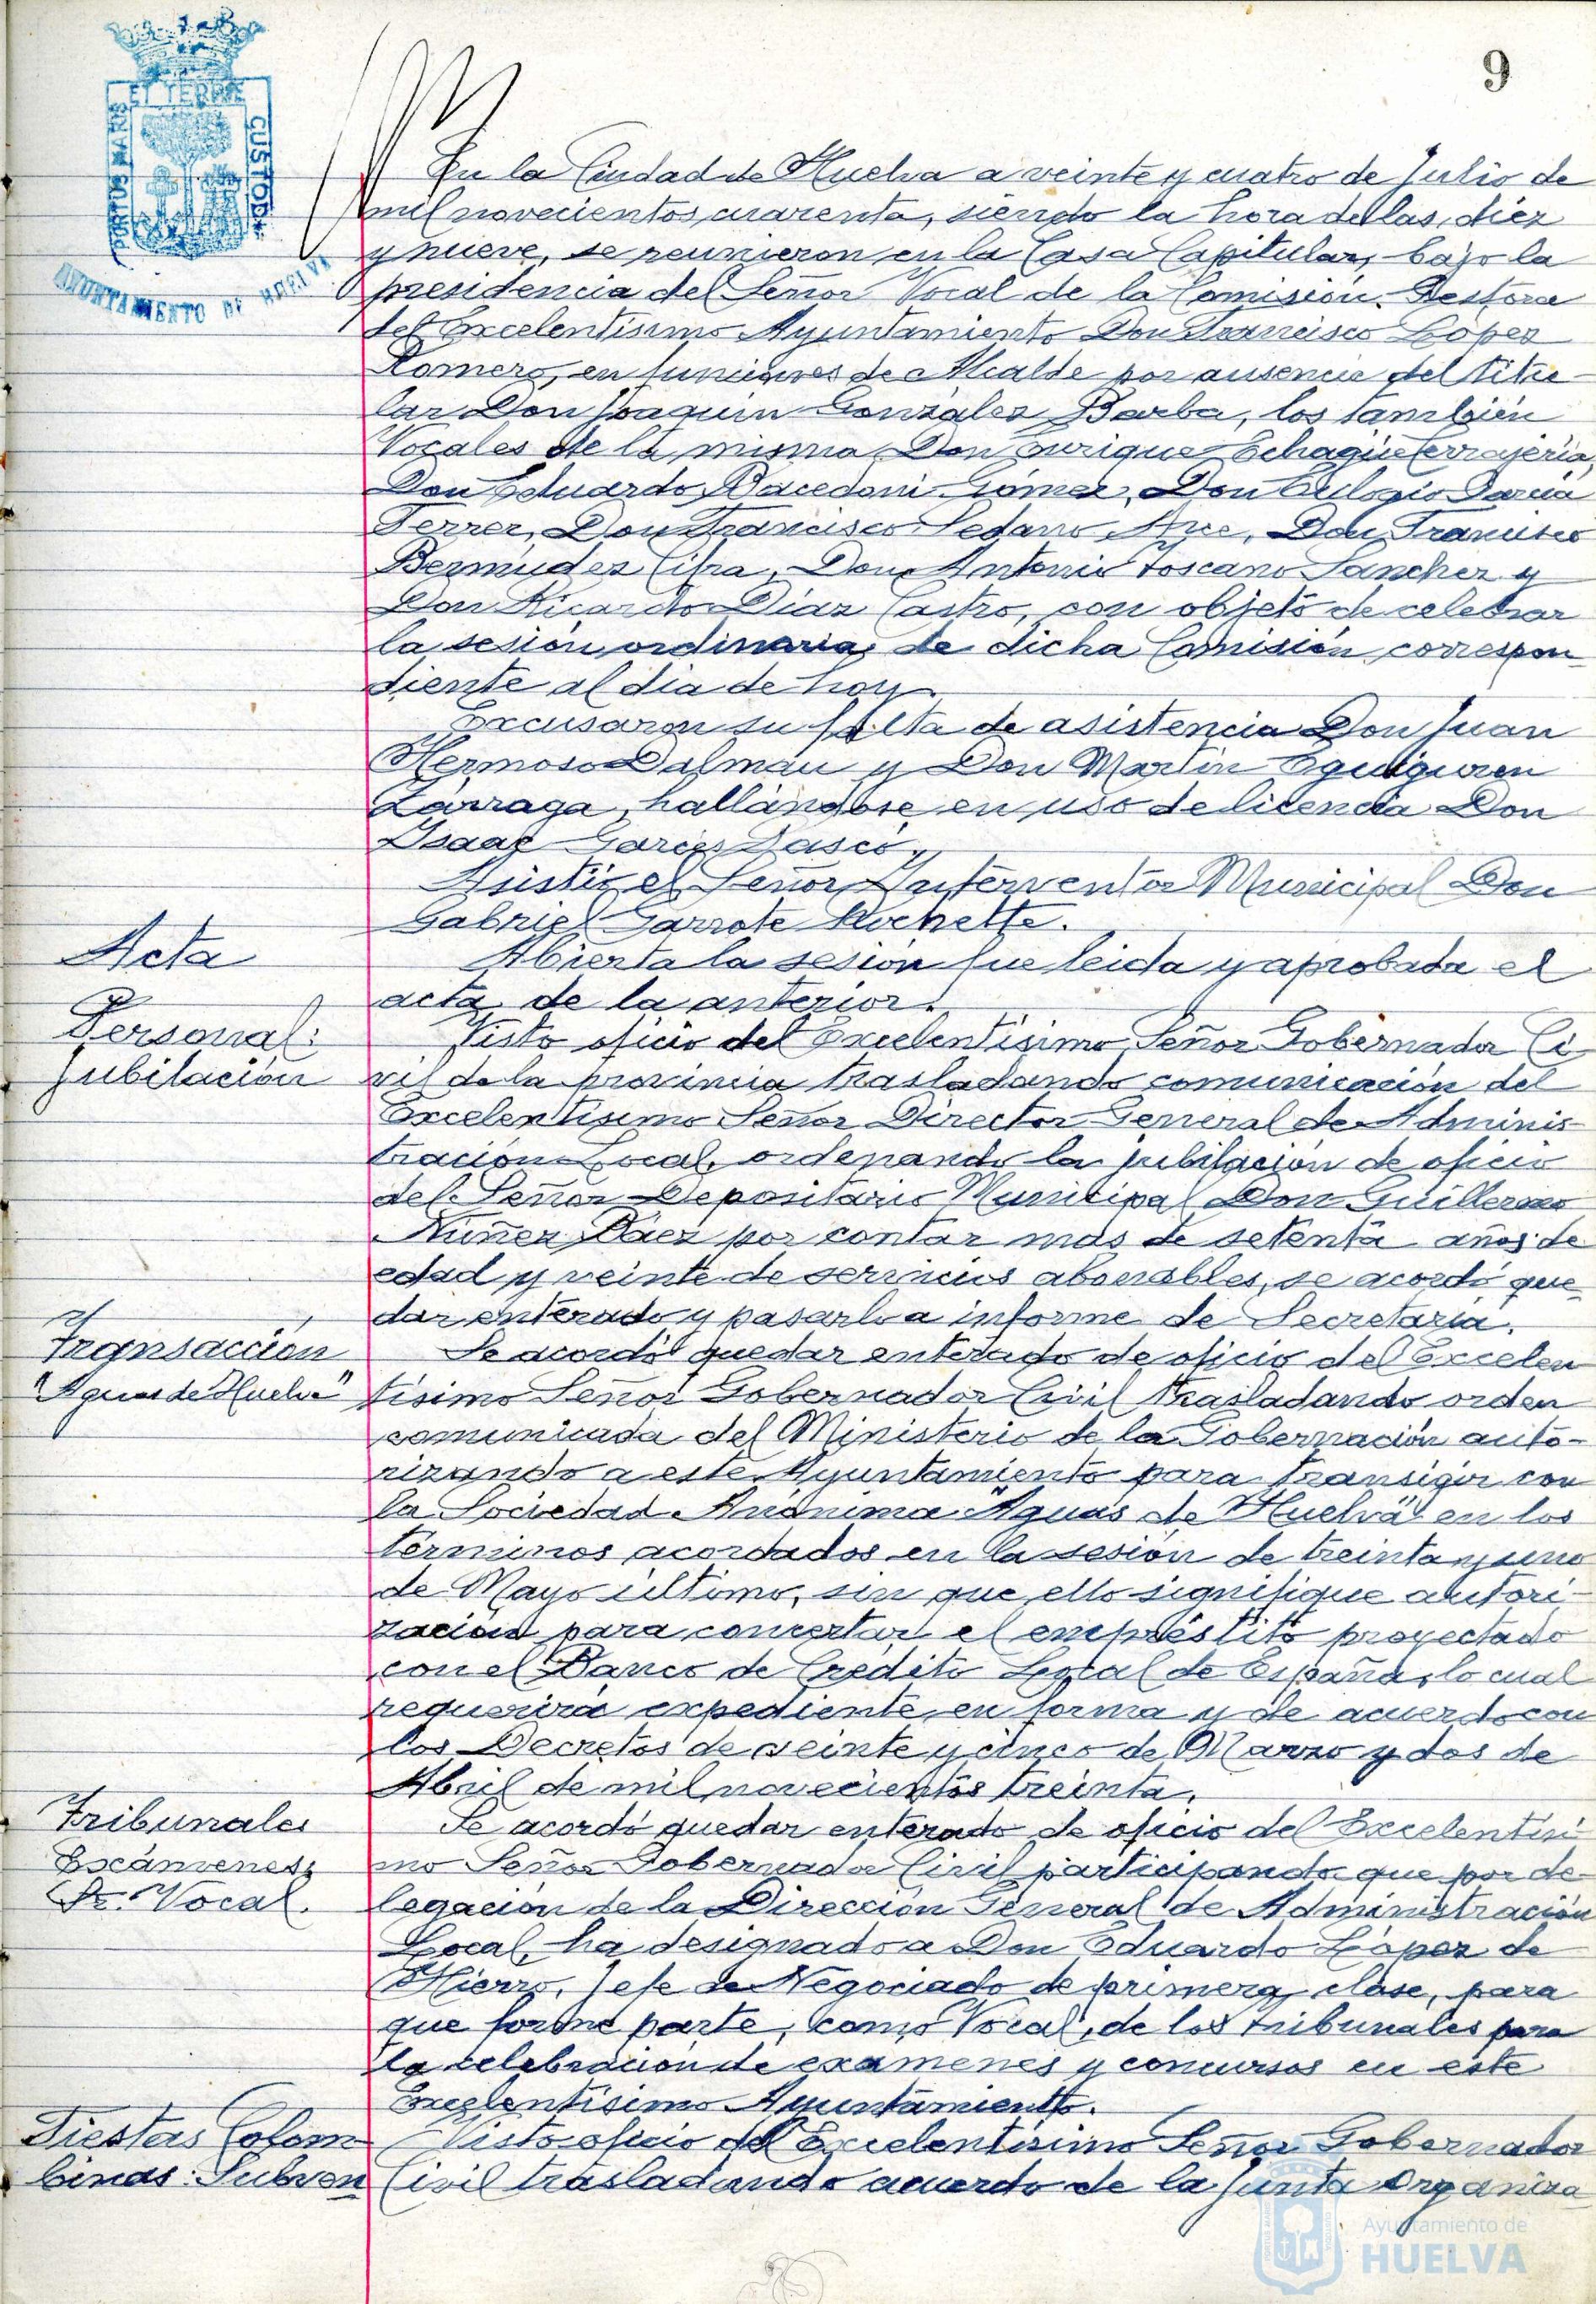 9
PORTUS MARIS
ET TERRE
CUSTODI
AYUNTAMIENTO DE HUELVA
En la Ciudad de Huelva a veinte y cuatro de Julio de
mil novecientos cuarenta, siendo la hora de las diez
y nueve, se reunieron en la Casa Capitular, bajo la
presidencia del Señor Vocal de la Comisión Gestora
del Excelentísimo Ayuntamiento Don Francisco López
Romero, en funciones de Alcalde por ausencia del titu-
lar Don Joaquín González Barba, los también
Vocales de la misma Don Enrique Echagüe
Don Eduardo Gómez, Don Eulogio García
Ferrer, Don Francisco Sedano Arce, Don Francisco
Bermúdez Cifra, Don Antonio Toscano Sánchez y
Don Ricardo Díaz Castro, con objeto de celebrar
la sesión ordinaria, de dicha Comisión correspon
diente al día de hoy.
Excusaron su falta de asistencia Don Juan
Hermoso Dalmau y Don Martín Eguiguren
Zárraga, hallándose en uso de licencia Don
Isaac
Asistió el Señor Interventor Municipal Don
Gabriel Garrote Rochette.
Acta
Abierta la sesión fue leida y aprobada el
acta de la anterior.
Personal:
Jubilación
Visto oficio del Excelentísimo Señor Gobernador Ci
vil de la provincia trasladando comunicación del
Excelentísimo Señor Director General de Adminis-
tración Local, ordenando la jubilación de oficio
del Señor Depositario Municipal Don Guillermo
Núñez Páez por contar mas de setenta años de
edad y veinte de servicios abonables, se acordó que
dar enterado y pasarlo a informe de Secretaría.
Transacción
"Aguas de Huelva"
Se acordó quedar enterado de oficio del Excelen
tísimo Señor Gobernador Civil trasladando orden
comunicada del Ministerio de la Gobernación auto-
rizando a este Ayuntamiento para transigir con
la Sociedad Anónima "Aguas de Huelva" en los
términos acordados en la sesión de treinta y uno
de Mayo último, sin que ello signifique autori-
zación para concertar el empréstito proyectado
con el Banco de Crédito Local de España, lo cual
requerirá expediente en forma y de acuerdo con
los Decretos de veinte y cinco de Marzo y dos de
Abril de mil novecientos treinta.
Tribunales
Sr. Vocal.
Se acordó quedar enterado de oficio del Excelentísi
mo Señor Gobernador Civil participando que por de-
legación de la Dirección General de Administración
Local, ha designado a Don Eduardo López de
Hierro, Jefe de Negociado de primera clase, para
que forme parte, como Vocal, de los tribunales para
la celebración de exámenes y concursos en este
Excelentísimo Ayuntamiento.
Fiestas Colom
binas: Subven
Visto oficio del Excelentísimo Señor Gobernador
Civil trasladando acuerdo de la Junta Organiza
Ayuntamiento de
HUELVA